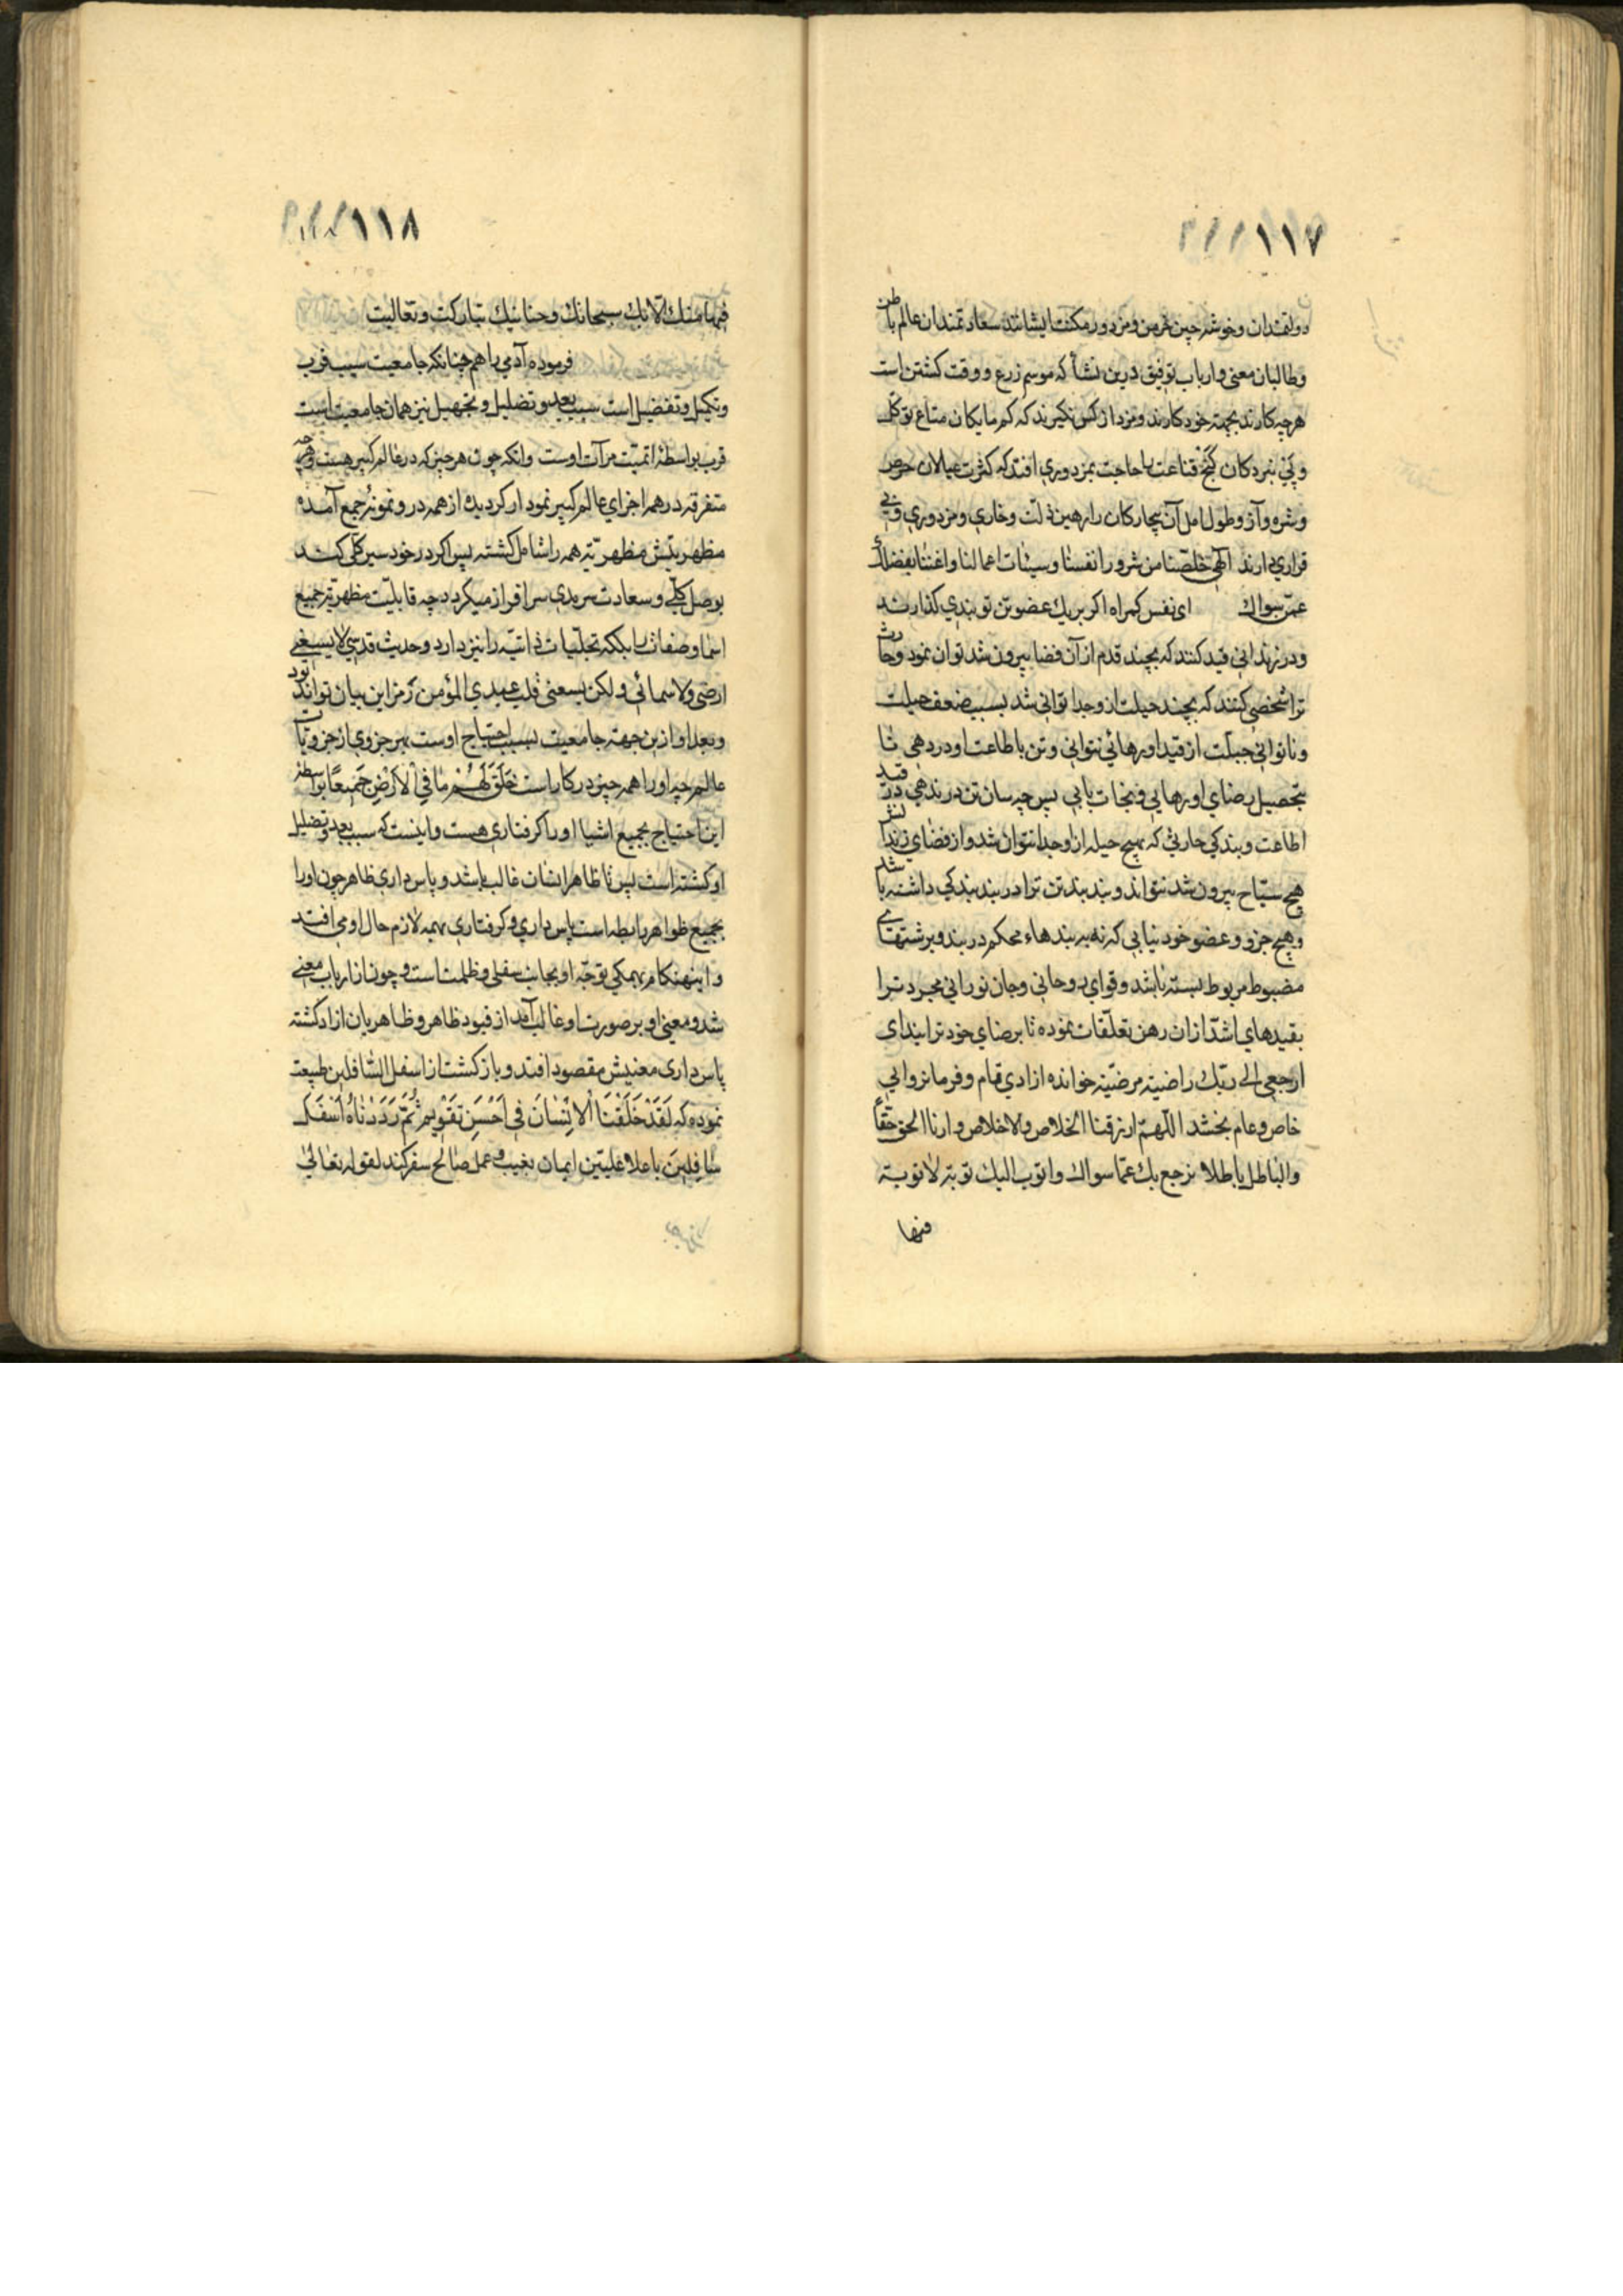 ١١٧
دولتمندان و خوشه چین خرمن و مزدور مکنت ایشانند سعادتمندان عالم باطن
و طالبان معنی و ارباب توفیق درین نشأ که موسم زرع و وقت کشتن است
هرچه کارند بجهة خود کارند و مزد از کس نگیرند که کم مایکان متاع توکل
و پی نبردکان کنج قناعت را حاجت بمزدوری افتد که کثرت عیالان حرص
و شره و آز و طول امل آن بیچارکان را رهین ذلت و خاری و مزدوری و بی
قراری دارند الهی خلّصنا من شرور انفسنا و سیئات اعمالنا و اغننا بفضلک
عمّن سواک ای نفس کمراه اکر بر یک عضو تن تو بندی کذارند
و در زندانی قید کنند که بچند قدم از آن فضا بیرون شد توان نمود و حارث
ترا شخصی کنند که بچند حیلت از و جدا توانی شد بسبب ضعف حیلت
و ناتوانی جبلّت از قید او رهائی نتوانی و تن باطاعت او در دهی تا
بتحصیل رضای او رهایی و نجات یابی پس چه سان تن در ندهی در قید
اطاعت و بندکی حارثی که بهیچ حیله از او جدا نتوان شد و از فضای زندانش
هیچ سیّاح بیرون شد نتواند و بند بند تن ترا در بند بندکی داشته باشد
و هیچ جزو و عضو خود نیابی که نه ببندهاء محکم در بند و برشتهای
مضبوط مربوط بسته باشد و قوای روحانی و جان نورانی مجرد ترا
بقیدهای اشدّ از ان رهن تعلّقات نموده تا برضای خود ترا بندای
ارجعی الی ربّک راضیة مرضیّة خوانده ازادی تمام و فرمانروایی
خاص و عام بخشد اللّهمّ ارزقنا الخلاص و الاخلاص و ارنا الحق حقاً
و الباطل باطلا نرجع بک عمّا سواک و اتوب الیک توبة لا توبة
منها
١١٨
منها منک الّا بک سبحانک و حنانیک تبارکت و تعالیت
فرموده آدمی را همچنانکه جامعیت سبب قرب
و تکمیل و تفضیل است سبب بعد و تضلیل و تجهیل نیز همان جامعیت است
قرب بواسطهٔ اتمیّت مرآت اوست و انکه چون هرچیز که در عالم کبیر هست و هرچه
متفرقه در همه اجزای عالم کبیر نمودار کردیده از همه در و نمونهٔ جمع آمده
مظهریتش مظهریّة همه را شامل کشته پس اکر در خود سیر کلّی کند
بوصل کلّی و سعادت سرمدی سرافراز میکردد چه قابلیّت مظهریّة جمیع
اسما و صفات را بلکه تجلّیات ذاتیّه را نیز دارد و حدیث قدسی لا یسعنی
ارضی و لا سمائی و لکن یسعنی قلب عبدی المؤمن رمز این بیان تواند بود
و بعد او ازین جهة جامعیت بسبب احتیاج اوست بهر جزوی از جزویات
عالم چه او را همه چیز درکار است خَلَقَ لَهُمْ مٰا فِی الْاَرْضِ جَمیعًا بواسطهٔ
این احتیاج بجمیع اشیا او را کرفتاری هست و اینست که سبب بعد و تضلیل
او کشته است پس تا ظاهر انسان غالب باشد و پاس داری ظاهر چون او را
بجمیع ظواهر رابطه است پاس داری و کرفتاری همه لازم حال او می افتد
و اینهنکام بهمکی توجّه او بجانب سفلی و ظلمت است و چون از ارباب معنی
شد و معنی او بر صورت او غالب آمد از قیود ظاهر و ظاهریان ازاد کشته
پاس داری معنیش مقصود افتد و بازکشت از اسفل السّافلین طبیعت
نموده که لَقَدْ خَلَقْنَا الْاِنْسٰانَ فِی اَحْسَنِ تَقْوِیمٍ ثُمَّ رَدَدْنٰاهُ اَسْفَلَ
سٰافِلِینَ باعلا علیّین ایمان بغیب و عمل صٰالح سفر کند لقوله تعٰالیٰ